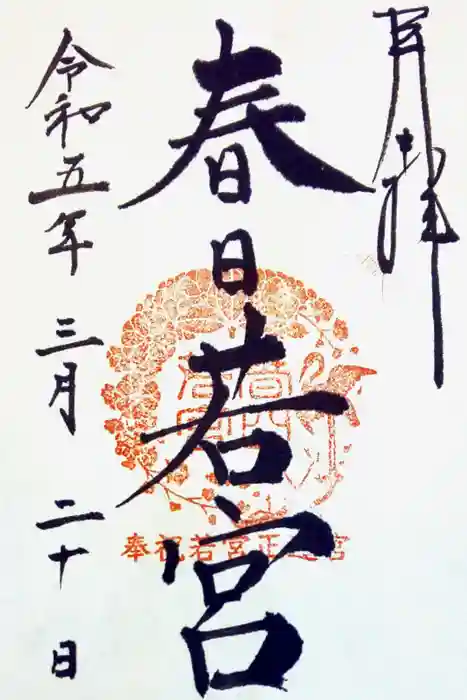 奉拝
春日若宮
奉祝若宮正遷宮
令和五年三月二十日